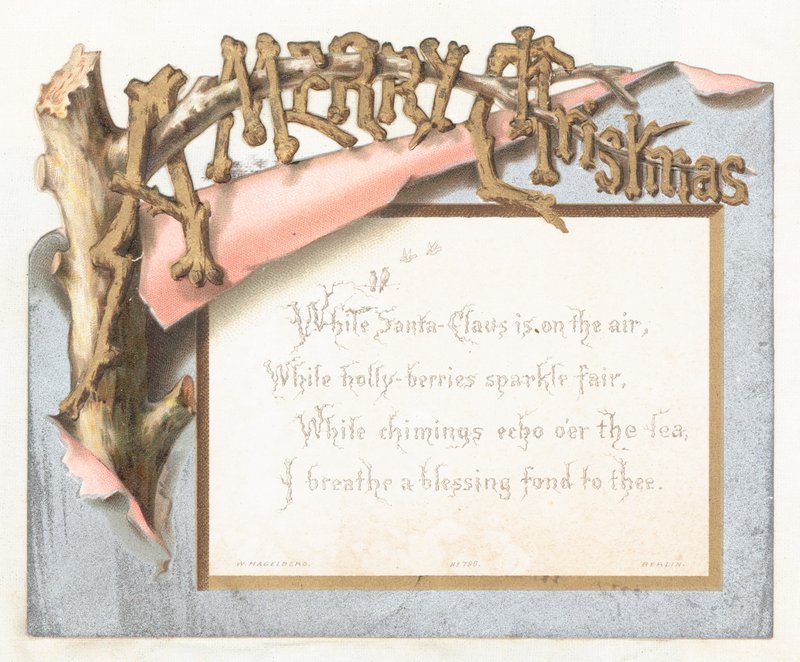 A Merry Christmas
While Santa-Claus is on the air,
While holly-berries sparkle fair,
While chimings echo o'er the lea,
I breathe a blessing fond to thee.
W. HAGELBERG. No 790. BERLIN.